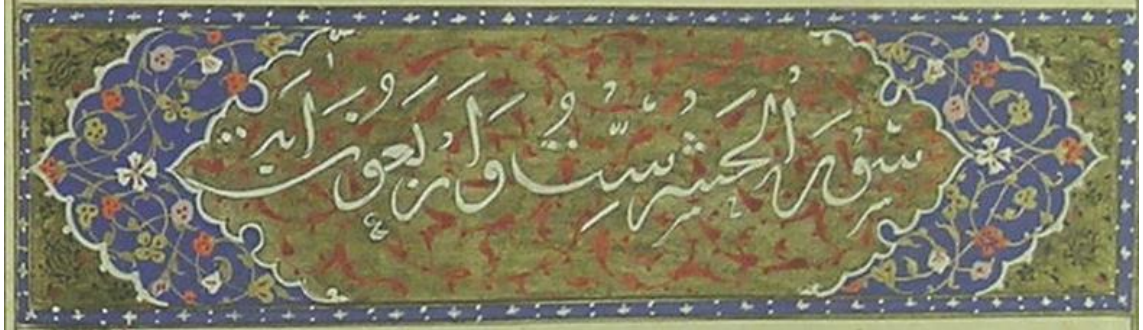 سورة الحشر ست واربعون اية